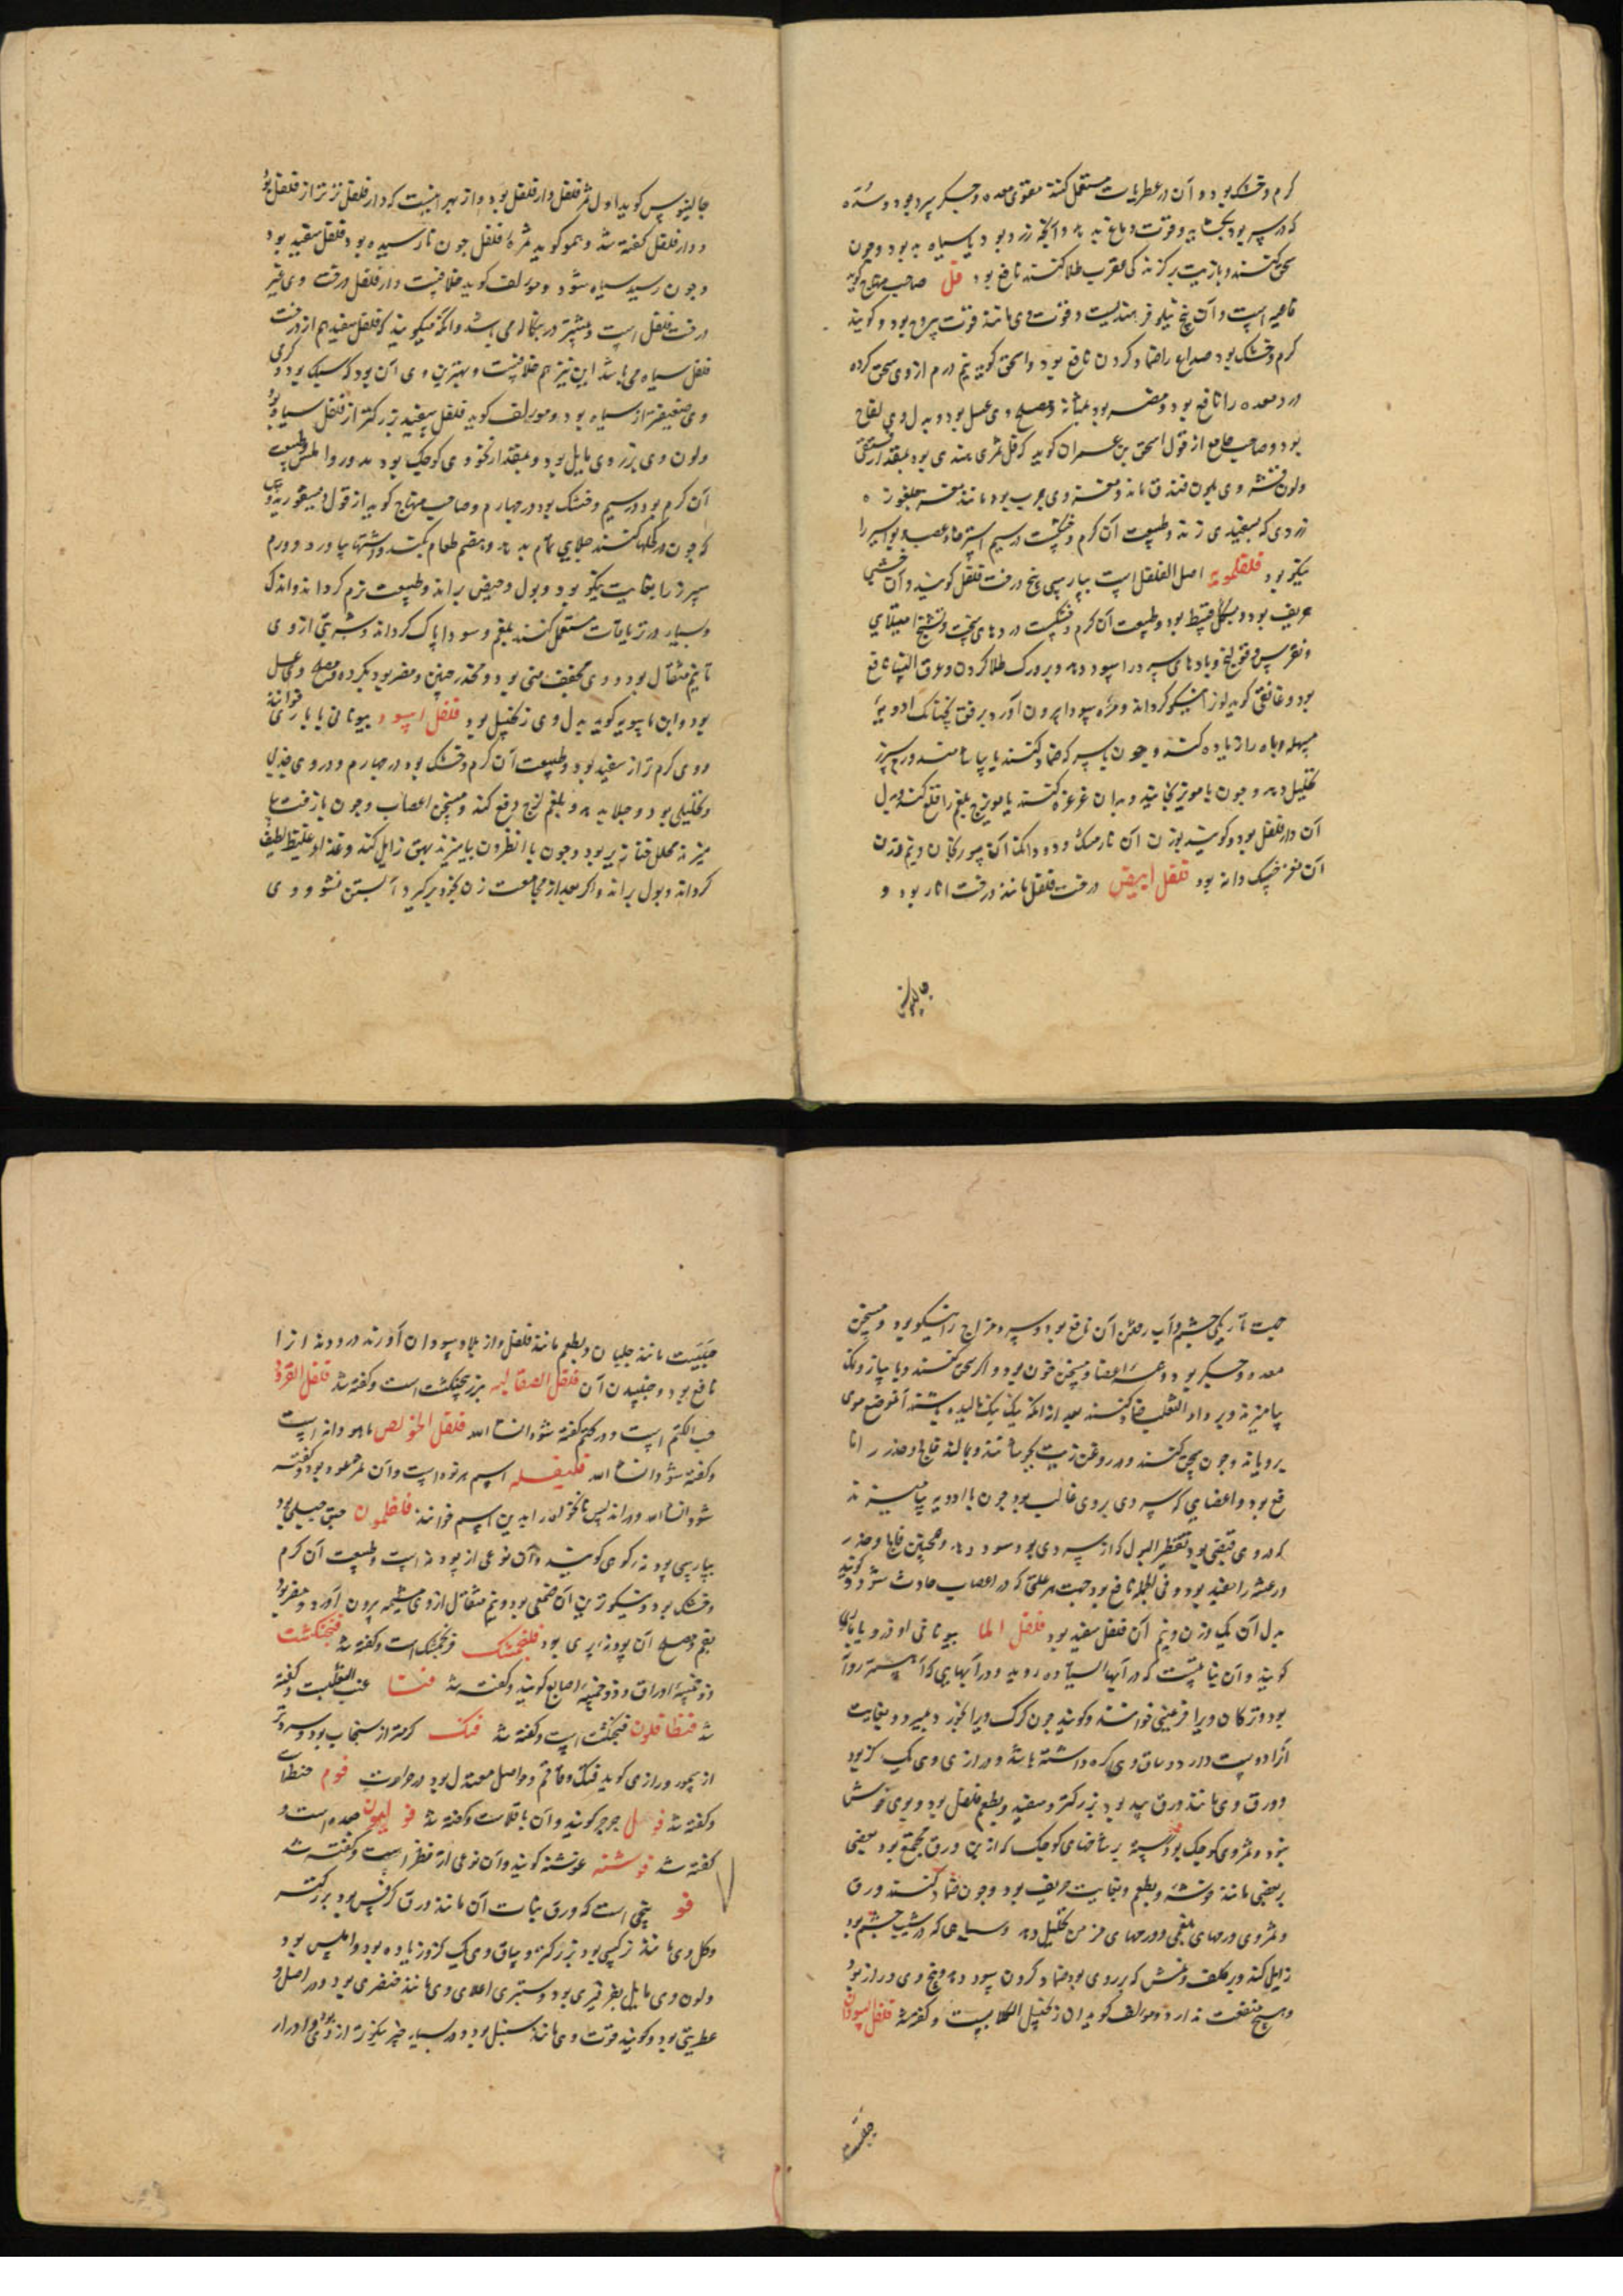 گرم و خشک بود و آن در عطریات مستعمل کنند مقوی معده و جگر سرد بود و سده
که در سر بود بگشاید و قوت دماغ بدهد و آنچه زرد بود و یا سیاه بد بود و چون
سحق کنند و با زیت بر گزندگی عقرب طلا کنند نافع بود فل صاحب منهاج گوید
است و آن بیخ نیلوفر هندیست و قوت وی مانند قوت یبروح بود و گویند
گرم و خشک بود صداع را ضماد کردن نافع بود و اسحق گوید نیم درم از وی سحق کرده
درد معده را نافع بود و مضر بود بمثانه و مصلح وی عسل بود و بدل وی لفاح
بود و صاحب جامع از قول اسحق بن عمران گوید که فل ثمری هندی بود بمقدار فستقی
ولون قشر وی بلون فندق ماند و مغز وی چرب بود مانند مغز جلغوزه
زردی که بسفیدی زند و طبیعت آن گرم و خشکست در سیم استرخاء عصب و بواسیر را
نیکو بود فلفلمویه اصل الفلفل است بپارسی بیخ درخت فلفل گویند و آن خشبی
حریف بود و بشکل قسط بود و طبیعت آن گرم و خشکست دردهای سخت و تشنج امتلای
و نقرس و قولنج و بادهای سرد را سود دهد و بر ورک طلا کردن و عرق النسا نافع
بود و غافقی گوید لون نیکو گرداند و مره سودا بیرون آورد برفق
مسهله و باه را زیاده کند و چون با سرکه ضماد کنند یا بیاشامند ورم سپرز
تحلیل دهد و چون با مویز بخایند و بدان غرغره کنند با مویزج بلغم را قلع کند و بدل
آن دارفلفل بود و گویند بوزن آن نارمشک و دو دانگ آن سورنجان و نیم وزن
آن مغز خسک دانه بود فلفل ابیض درخت فلفل مانند درخت انار بود و
جالینوس
جالینوس گوید اول ثمر فلفل دارفلفل بود و از بهر اینست که دارفلفل تر تر از فلفل بود
و دارفلفل گفته شد و همو گوید ثمرهٔ فلفل چون نارسیده بود فلفل سفید بود
و چون رسید سیاه شود و مولف گوید خلافست دارفلفل درخت وی غیر
درخت فلفل است و بیشتر در بنگاله می باشد و آنکه میگویند که فلفل سفید هم از درخت
فلفل سیاه می باشد این نیز هم خلافست و بهترین وی آن بود که سبک بود و گرمی
وی ضعیفتر از سیاه بود و مولف گوید فلفل سفید بزرگتر از فلفل سیاه بود
ولون وی بزردی مایل بود و بمقدار نخودی کوچک بود مدور و املس و طبیعت
آن گرم بود در سیم و خشک بود در چهارم و صاحب منهاج گوید از قول دیسقوریدوس
که چون در کحلها کنند جلایی تمام بدهد و هضم طعام بکند و اشتها بیاورد و ورم
سپرز را بغایت نیکو بود و بول و حیض براند و طبیعت نرم گرداند و اندک
و بسیار در تریاقات مستعمل کنند بلغم و سودا پاک گرداند و شربتی از وی
تا نیم مثقال بود و وی مجفف منی بود و مخدر جنین و مضر بود بگرده و مصلح وی عسل
بود و ابن ماسویه گوید بدل وی زنجبیل بود فلفل اسود بیونانی باباری خوانند
و وی گرم تر از سفید بود و طبیعت آن گرم و خشک بود در چهارم و در وی جذبی
و تحلیلی بود و جلا بدهد و بلغم لزج دفع کند و مسخن اعصاب و چون با زفت
میزند محلل خنازیر بود و چون با نطرون بیامیزند بهق زایل کند و غذا و غلیظ لطیف
گرداند و بول براند و اگر بعد از مجامعت زن بخود برگیرد آبستن نشود و وی
جهت تاریکی چشم و آب رفتن آن نافع بود و سردمزاج را نیکو بود و مسخن
معده و جگر بود و عصب و اعضا و مسخن خون بود و اگر سحق کنند و با پیاز و نمک
بیامیزند و بر داء الثعلب ضماد کنند بعد از آنکه نیک نیک مالیده باشند آن موضع موی
برویاند و چون سحق کنند و در روغن زیت بجوشانند و بمالند فالج و خدر را نا
فع بود و اعضایی که سردی بر وی غالب بود چون با ادویه بیامیزند
که در وی قبضی بود تقطیر البول که از سردی بود سود دهد و همچنین فالج و خدر
و رعشه را مفید بود و فی الجمله نافع بود جهت هر علتی که در اعصاب حادث شود و گویند
بدل آن یک وزن و نیم آن فلفل سفید بود فلفل الما بیونانی
گویند و آن نباتیست که در آبهای ایستاده روید و در آبهایی که آهسته روان
بود و ترکان ویرا قرغینی خوانند و گویند چون گرگ ویرا بخورد بمیرد و بغایت
آزاد دوست دارد و ساق وی گره داشته باشد و درازی وی یک گز بود
و ورق وی مانند ورق بید بود بزرگتر و سفید و بطعم فلفل بود و بوی خوش
نبود و ثمر وی کوچک بود رسته بر شاخهای کوچک که از بن ورق مجتمع بود بعضی
بر بعضی مانند خوشه و بطعم و بغایت حریف بود و چون ضماد کنند ورق
و ثمر وی ورمهای بلغمی و ورمهای مزمن تحلیل دهد و سیاهی که در شیب چشم بود
زایل کند و بر کلف و نمش که بر روی بود ضماد کردن سود دهد و بیخ وی دراز بود
و هیچ منفعت ندارد و مولف گوید آن زنجبیل الکلابست و گفته شد فلفل السودان
حبیست
حبیست مانند جلبان و بطعم مانند فلفل و از بلاد سودان آورند درد دندانرا
نافع بود و جنبیدن آن فلفل الصقالبه بزر پنجنکشت است و گفته شد فلفل القرود
حب الکتم است و در کاف گفته شود انشاء الله فلفل الخولص ماهودانه است
و گفته شود انشاء الله فلیفله اسم هرنوه است و آن ثمر عود بود و گفته
شود انشاء الله و در اندلس نانخواه را بدین اسم خوانند فلفلمون حبق جبلی بود
بپارسی پودنه کوهی گویند و آن نوعی از پودنه است و طبیعت آن گرم
و خشک بود و نیکوترین آن جبلی بود و نیم مثقال از وی مشیمه بیرون آورد و مضر بود
بفم و مصلح آن پودنه بری بود فلنجمشک فرنجمشک است و گفته شد فنجنکشت
ذو خمسة اوراق و ذو خمسة اصابع گویند و گفته شد فنا عنب الثعلبست و گفته
شد فنطافلون فنجنکشت است و گفته شد فنک گرمتر از سنجاب بود و سردتر
از سمور و رازی گوید فنک و قاقم و حواصل معتدل بود در حرارت فوم حنطه است
و گفته شد فول جرجر گویند و آن باقلاست و گفته شد فو لیون جعده است و
گفته شد فوشنه غوشنه گویند و آن نوعی از فطر است و گفته شد
فو بیخی است که ورق نبات آن مانند ورق کرفس بود بزرگتر
و گل وی مانند نرگس بود بزرگتر و ساق وی یک گز و زیاده بود و املس بود
ولون وی مایل بفرفیری بود و سبتری اعلای وی مانند خنصری بود و در اصل او
عطریتی بود و گویند قوت وی مانند سنبل بود و در بسیار چیز نیکوتر از وی بود و ادرار